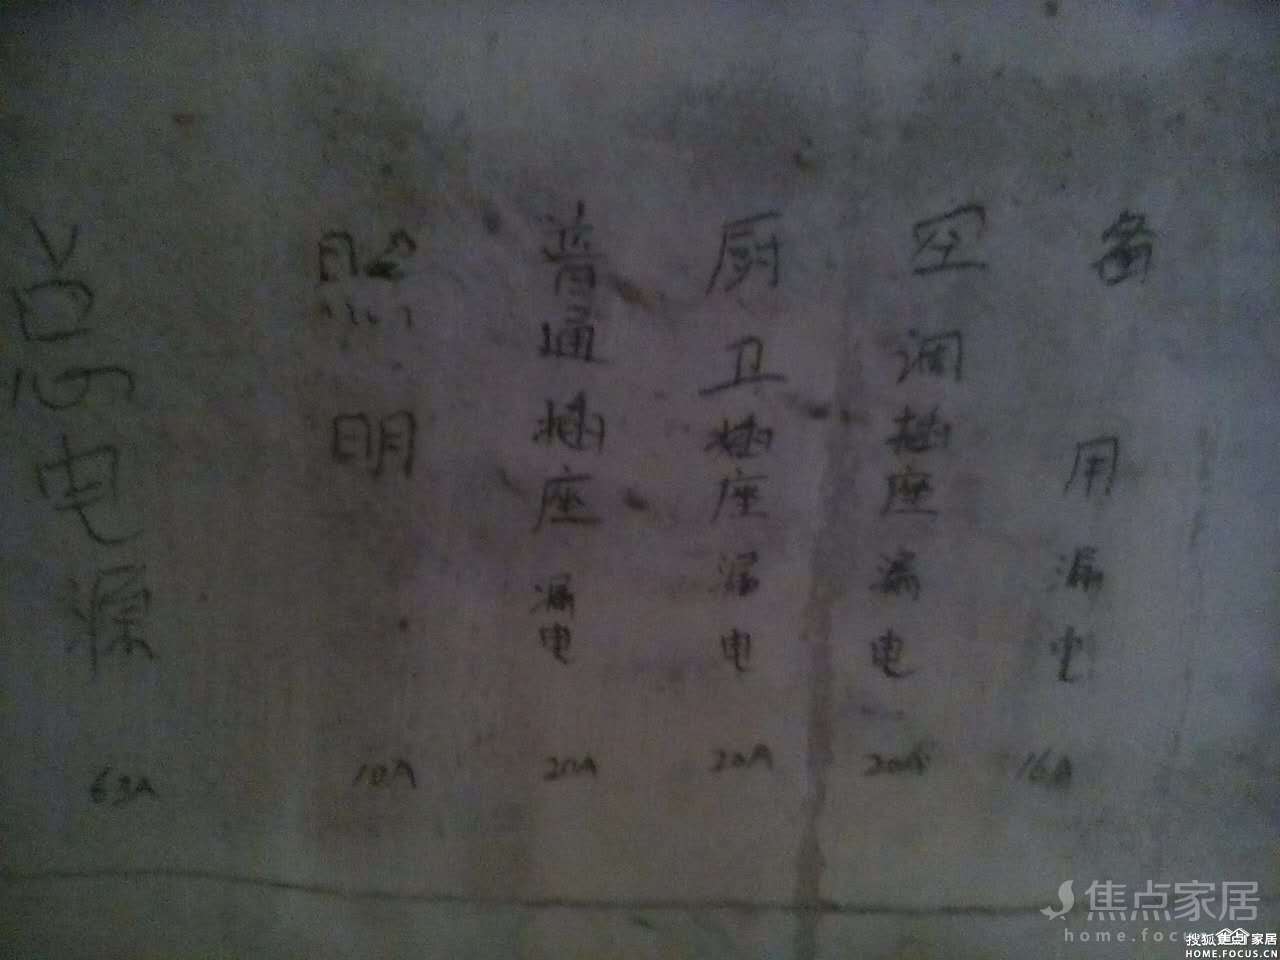 总电源 63A
照明 10A
普通插座 漏电 20A
厨卫插座 漏电 20A
空调插座 漏电 20A
备用 漏电 16A
焦点家居
home.focus
搜狐焦点家居
HOME.FOCUS.CN